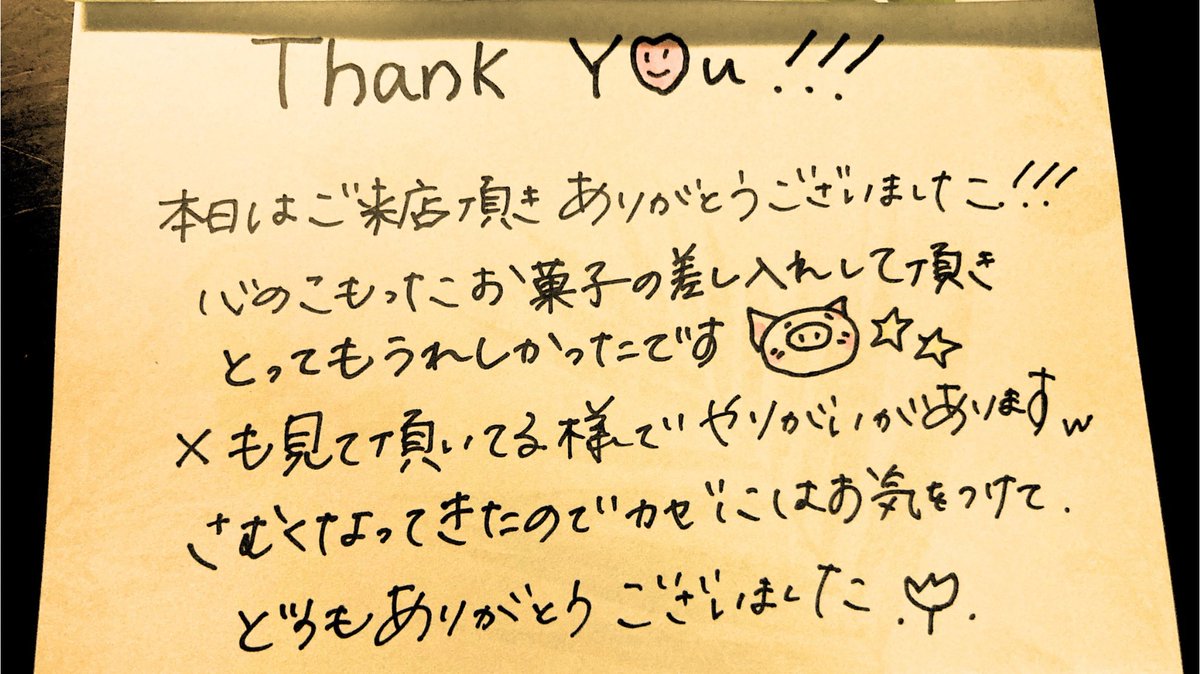 Thank You!!!
本日はご来店頂きありがとうございました!!!
心のこもったお菓子の差し入れして頂き
とってもうれしかったです
Xも見て頂いてる様でやりがいがありますw
さむくなってきたのでカゼにはお気をつけて.
どうもありがとうございました